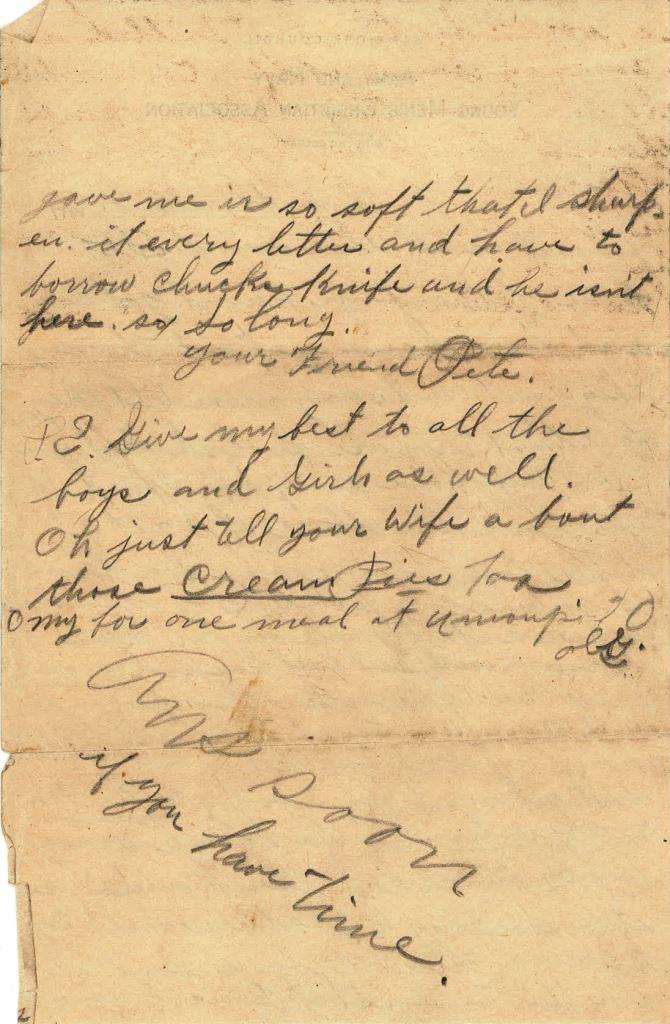 gave me is so soft that I sharp-
en. it every letter and have to
borrow Chucks Knife and he isnt
here. so So long.
Your Friend Pete.
P.S. Give my best to all the
boys and Girls as well.
Oh just tell your Wife a bout
those Cream Pies
O my for one meal at
Ans soon
if you have time.